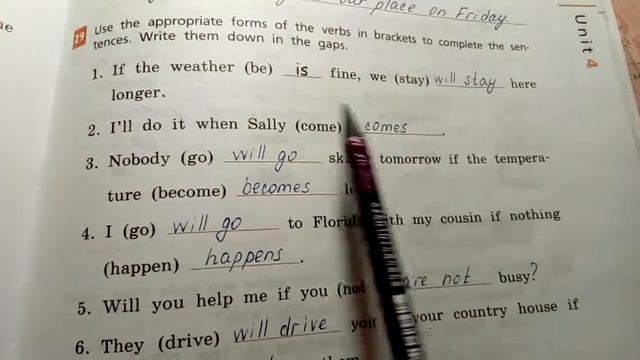 our place on Friday
Unit 4
29 Use the appropriate forms of the verbs in brackets to complete the sen-
tences. Write them down in the gaps.
1. If the weather (be) is fine, we (stay) will stay here
longer.
2. I'll do it when Sally (come) comes.
3. Nobody (go) will go tomorrow if the tempera-
ture (become) becomes
4. I (go) will go to with my cousin if nothing
(happen) happens.
5. Will you help me if you are not busy?
6. They (drive) will drive your country house if